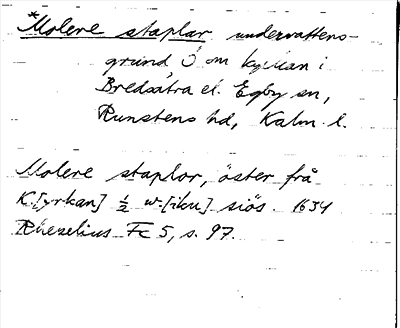 *Molere staplar undervattens-
grund Ö om kyrkan i
Bredsätra el. Egby sn,
Runstens hd, Kalm. l.
Molere staplor, öster frå
K[yrkan] ½ w[iku] siös. 1634
Rhezelius Fc 5, s. 97.